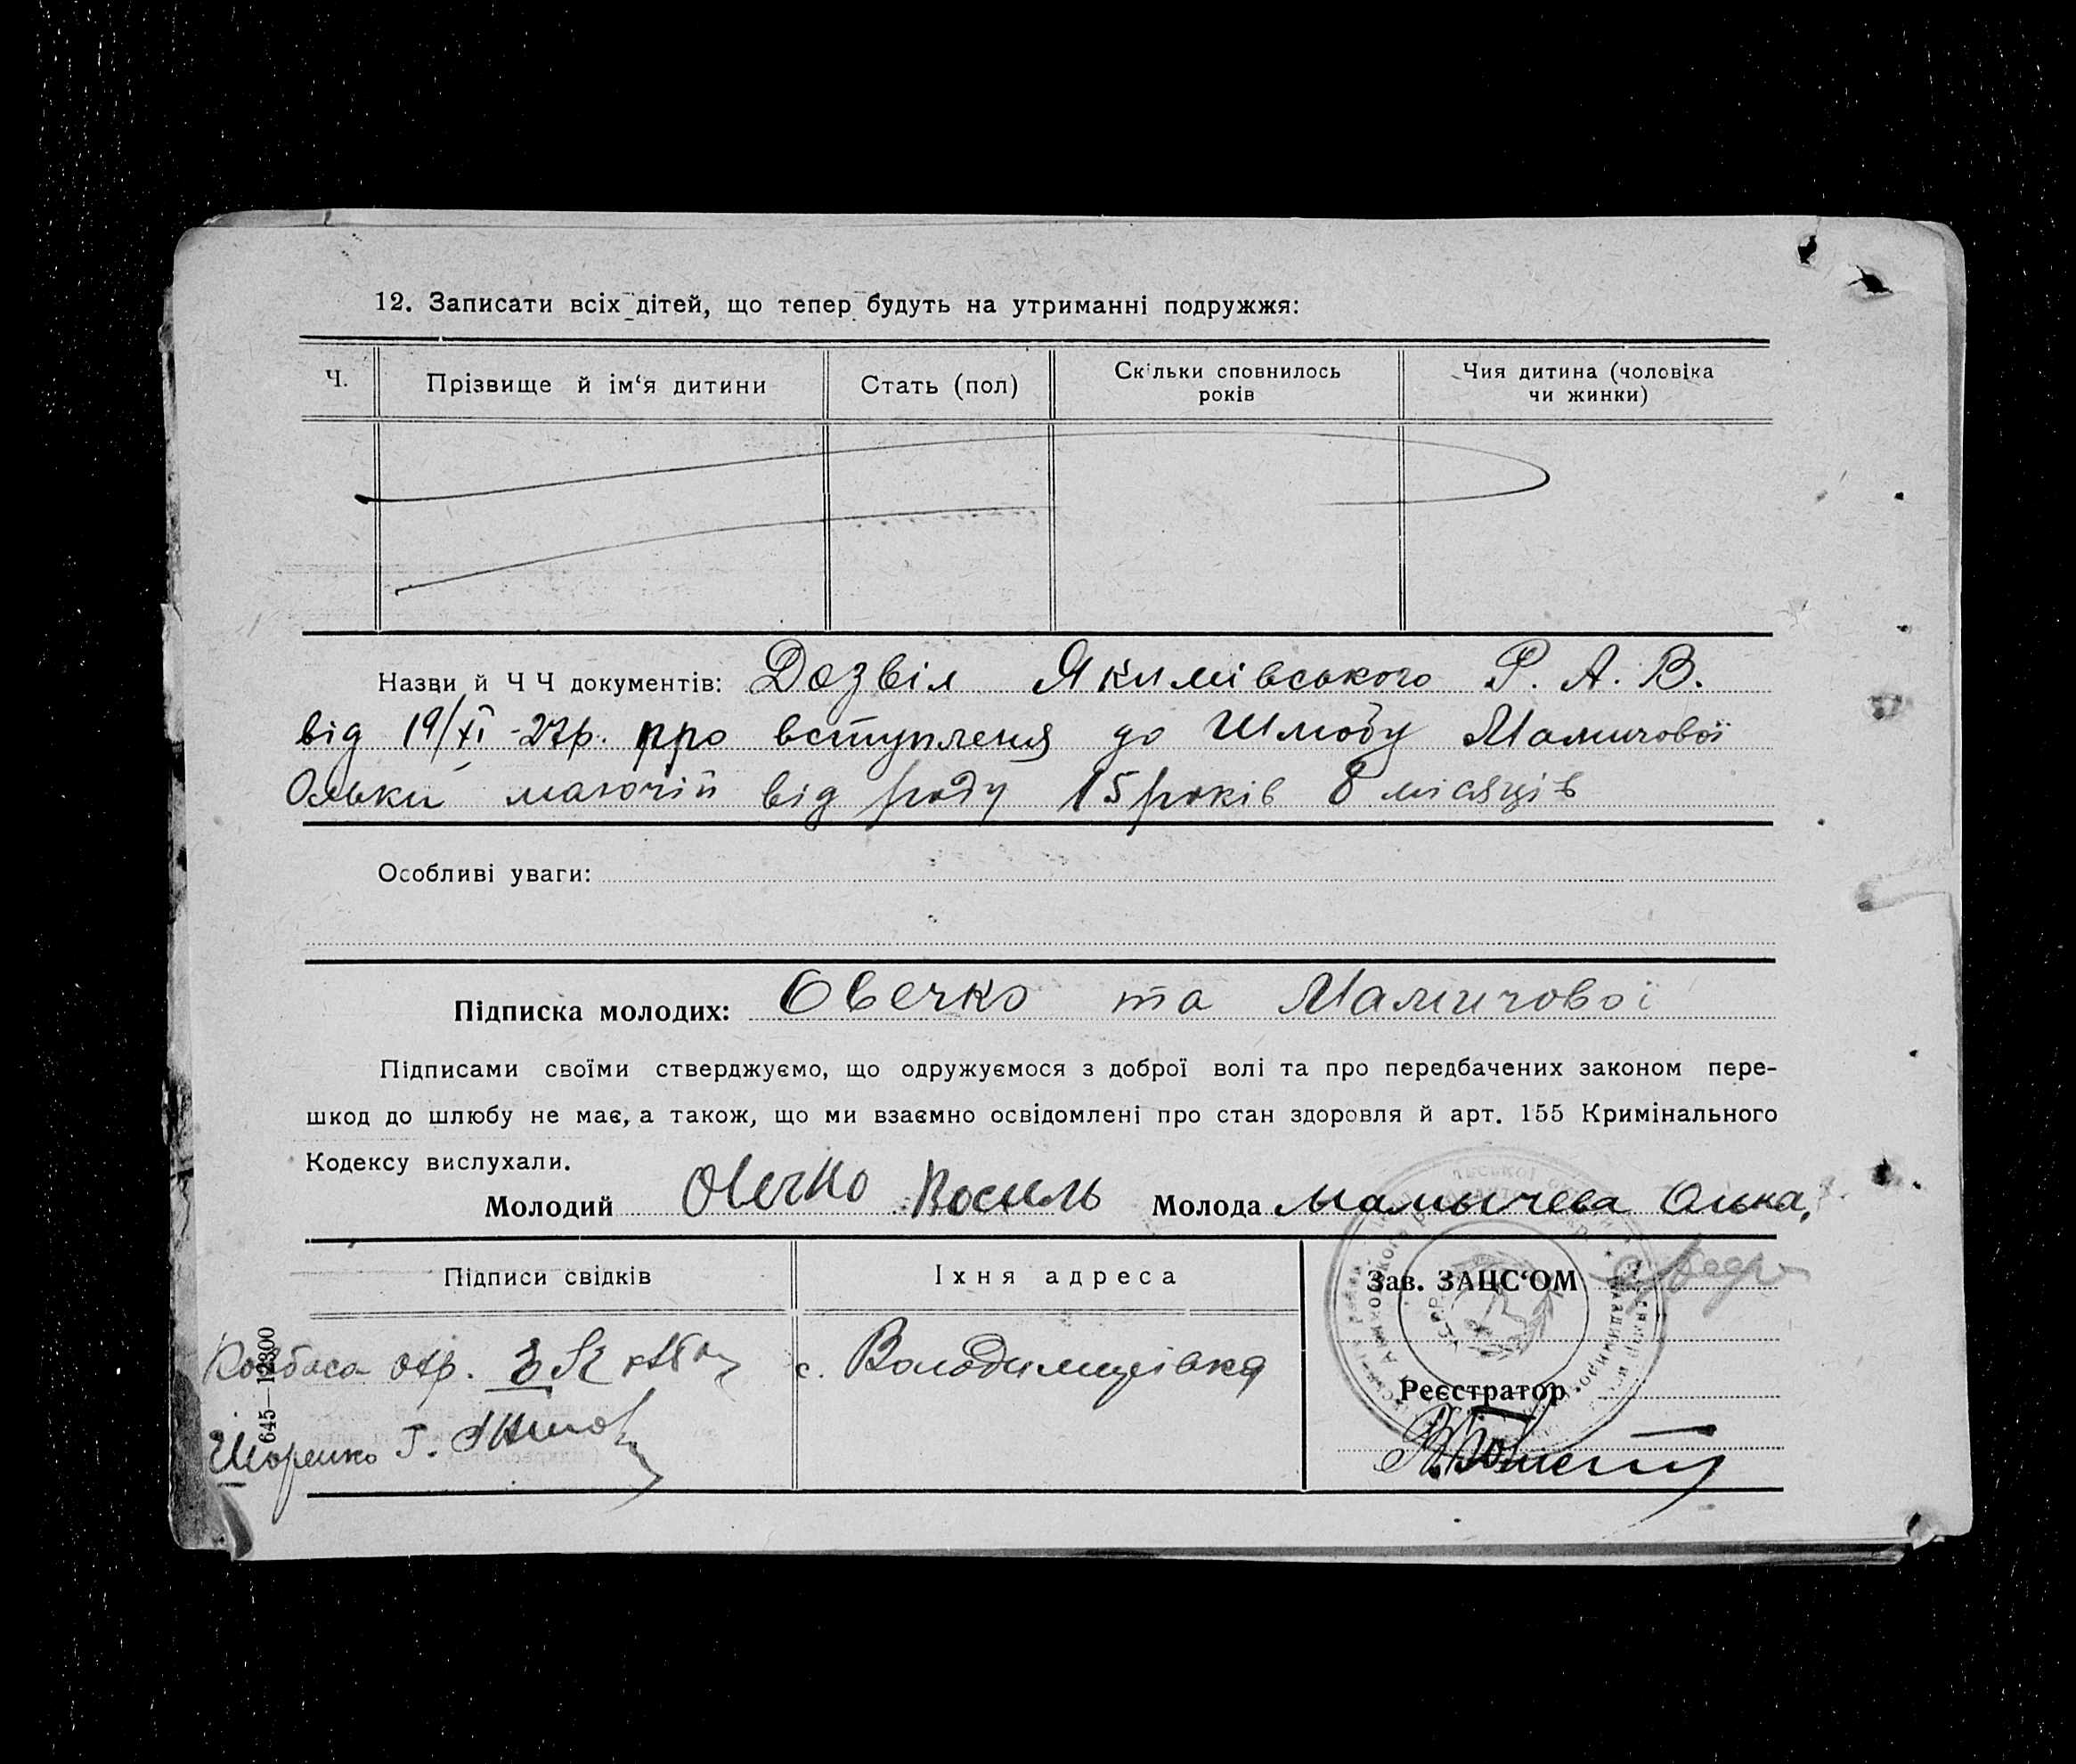 12. Записати всіх дітей, що тепер будуть на утриманні подружжя:
Ч. Прізвище й ім‘я дитини Стать (пол) Скільки сповнилось років Чия дитина (чоловіка чи жинки)
Назви й Ч Ч документів: Дозвіл Якимівського Р. А. В.
від 19/XI -27р. про вступленя до Шлюбу Мамичової
Ольки маючій від роду 15 років 8 місяців
Особливі уваги:
Підписка молодих: Овечко та Мамичової
Підписами своїми стверджуємо, що одружуємося з доброї волі та про передбачених законом пере-
шкод до шлюбу не має, а також, що ми взаємно освідомлені про стан здоровля й арт. 155 Кримінального
Кодексу вислухали.
Молодий Овечко Василь Молода Мамычева Олька,
Підписи свідків Їхня адреса Зав. ЗАЦС‘ОМ
Ковбаса с. Володимирівка
Реєстратор
645—12300